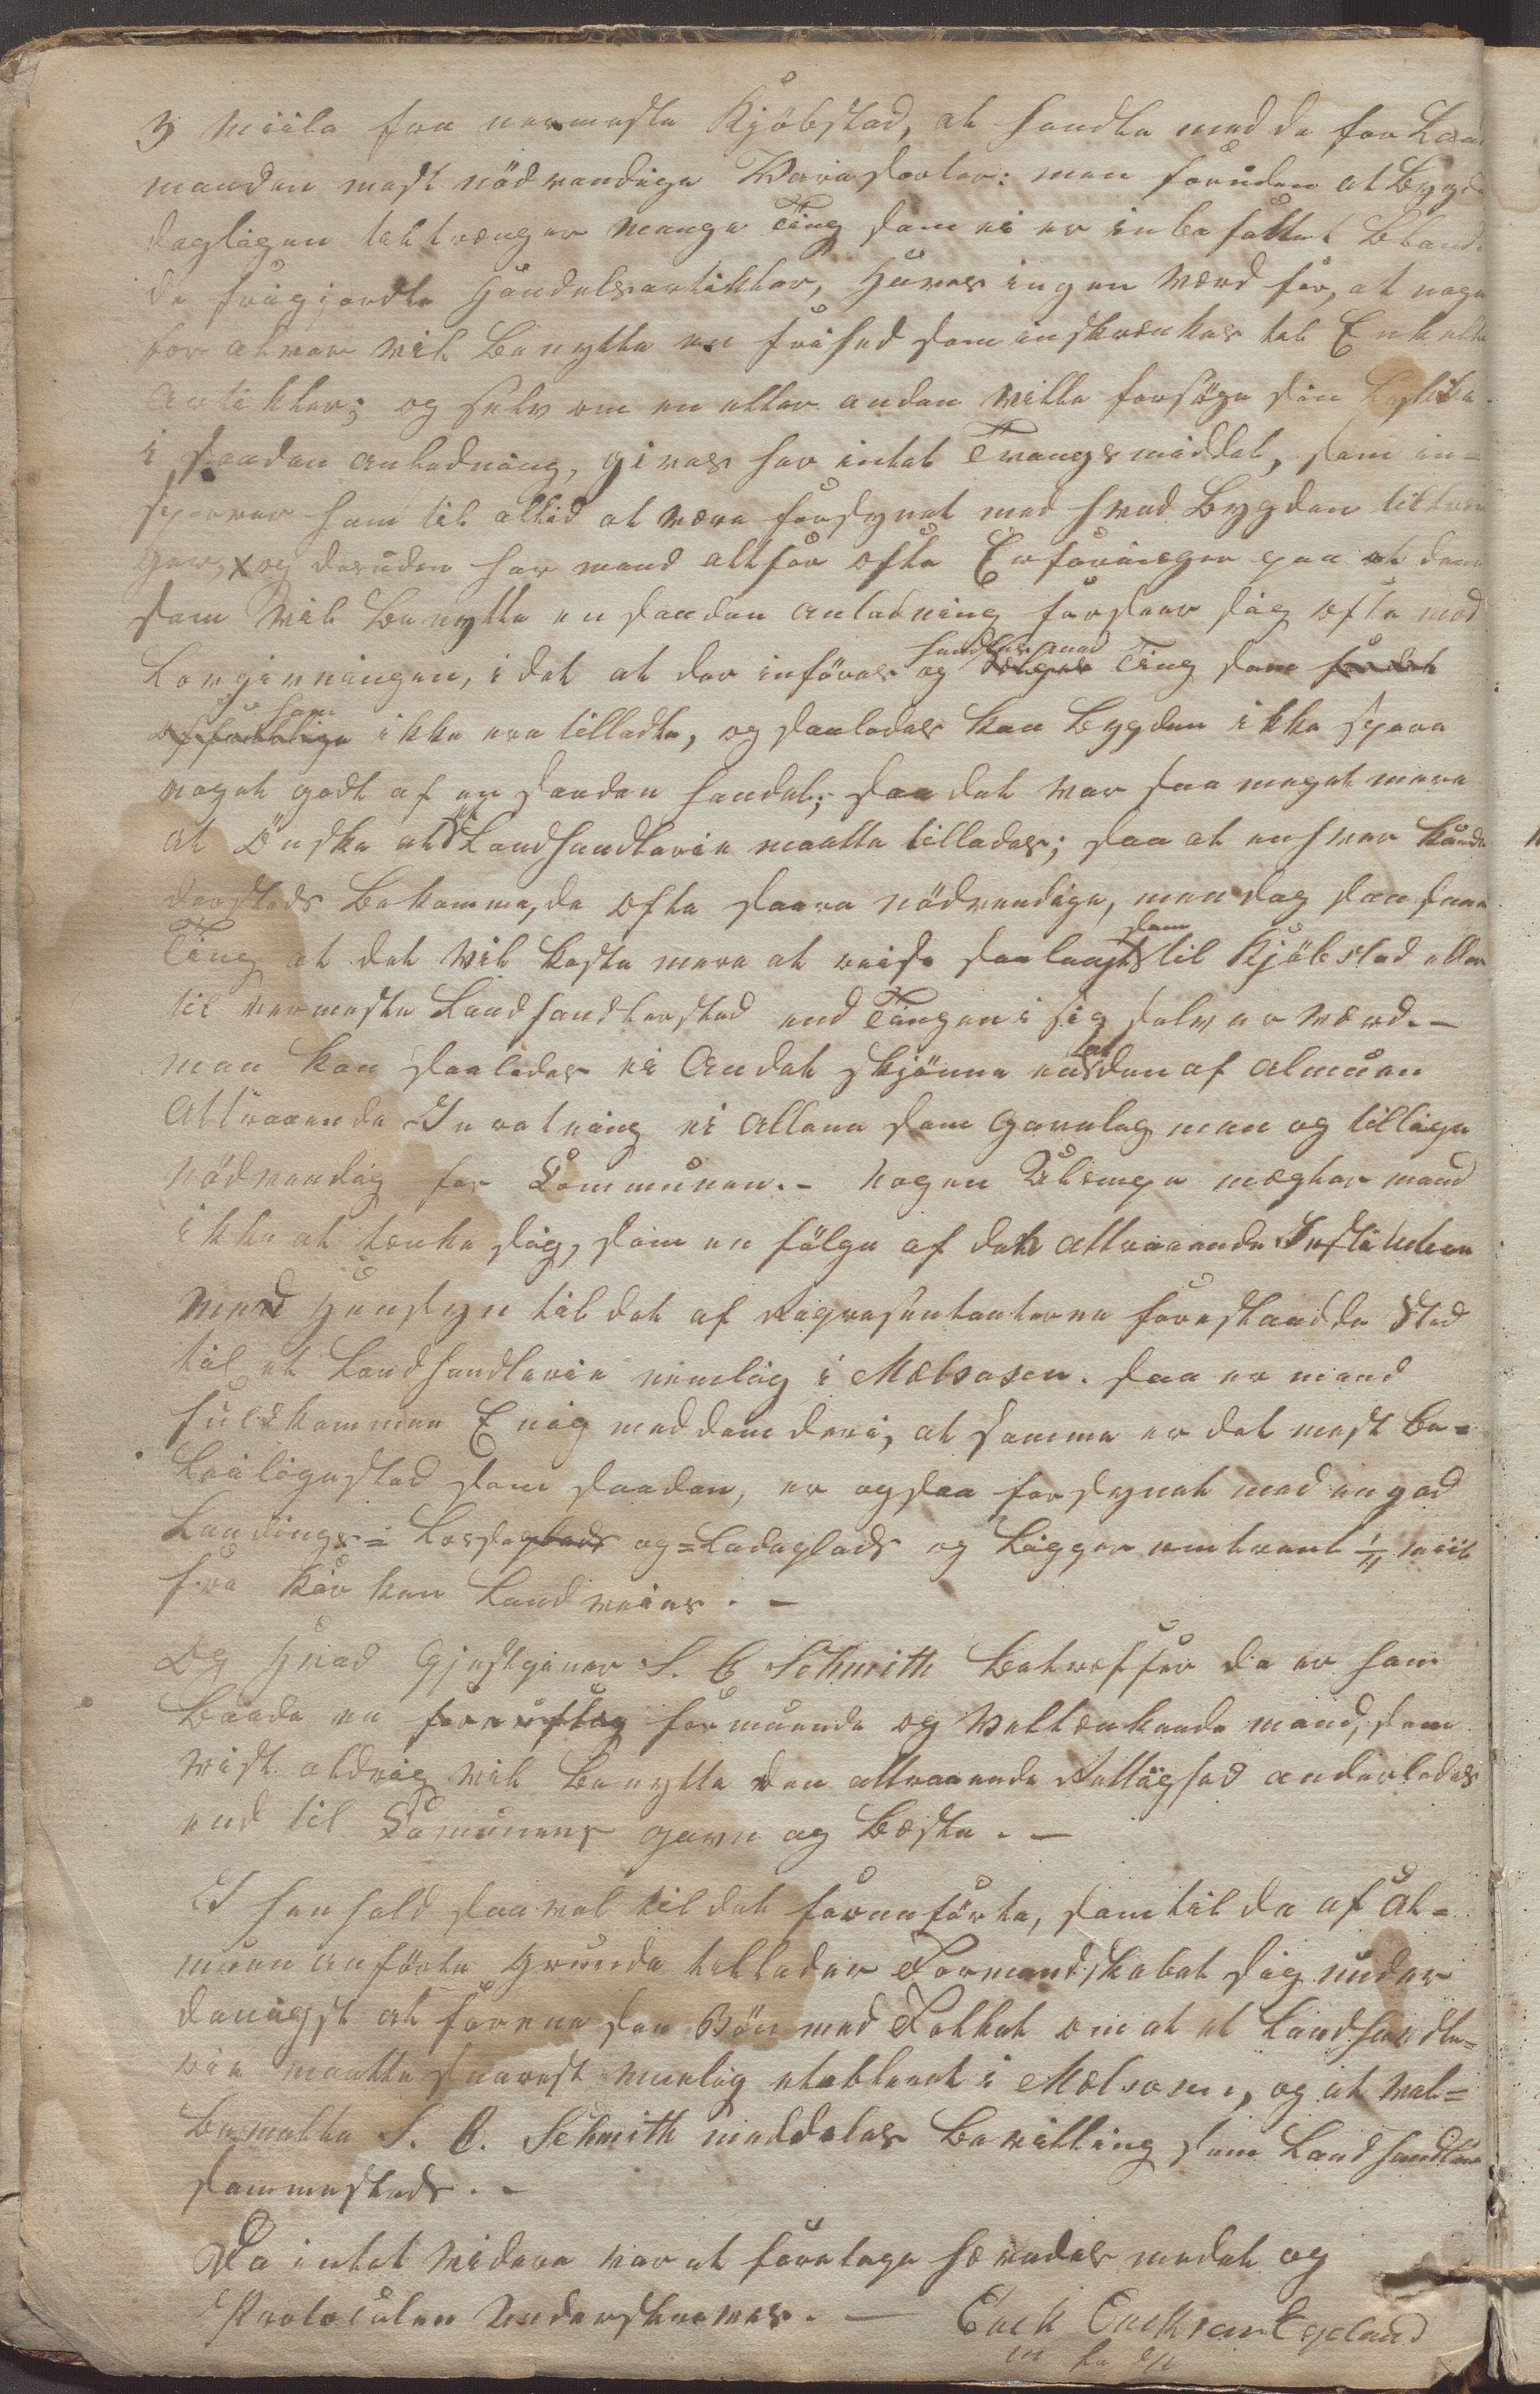 3 Miile fra nermeste Kjöbstad, at handle med de for Land
manden mest nödvendige Varesorter: men foruden at Bygde
dagligen tiltrænger mange Ting som ei er inbefattet Blandt
de frigjordte Handelsartikler, haves ingen Værd for, at noge
for alvor vil Benytte en frihed som inskrænkes til Enkelte
Artikler; og selv om en eller anden vilde forsöge sin Lykke
i saadan anledning, gives her intet Tvangsmiddel, som in=
sperer ham til altid at være forsynet med hvad Bygden tiltræn
ger, x og desuden har mand altfor ofte Erfaringer paa at dem
som vil Benytte en saadan anledning forseer sig ofte mod
Lovgivningen, i det at der införes og handles med Ting som
som ikke ere tilladte, og saaledes kan Bygden ikke spore
noget godt af en saadan handel; saa det var saa meget mere
at Önske at et Landhandlerie maatte tillades; saa at enhver kunde
dersteds Bekomme, de ofte saare nödvendige, men dog saa smaa
Ting at det vil koste mere at reise saa langt som til Kjöbstad eller
til nermeste Landhandlersted end Tingen i sig selv er værd.-
man kan saaledes ei Andet skjönne end at den af almuen
Attraaende Inretning ei allene som gavnlig men og tillige
nödvendig for Communen.- nogen Ulempe mægter mand
ikke at tænke sig, som en fölge af den attraaende Institution
med Hensyn til det af Repræsentanterne foreslaaede Sted
til et Landhandlerie nemlig i Mælsosen. saa er mand
fuldkommen Enig med dem deri, at samme er det mest be=
leiligested som saadan, er ogsaa forsynet med en god
Landings= Losse og =Ladeplads og ligger omtrent 1/4 Miil
fra Kirken Landveies.-
Og hvad Gjestgiver S. C Schmith Betreffer da er ham
Baade en formuende og veltænkende mand, som
vist aldrig vil benytte den attraaende Rettighed anderledes
end til Comunens gavn og Beste.-
I henhold saavel til det foranförte, som til de af Al=
muen anförte Grunde tillader Formandskabet sig under
danigst at forene sin Bön med Folket om at et Landhandle=
rie maatte snarest muelig etableret i Mælsosen, og at Vel=
bemelte S. C. Schmith meddeles Bevilling som Landhandler
sammesteds.-
Da intet videre var at foretage hævedes mødet og
Protocolen Underskreves.- Erick Erichsen Egeland